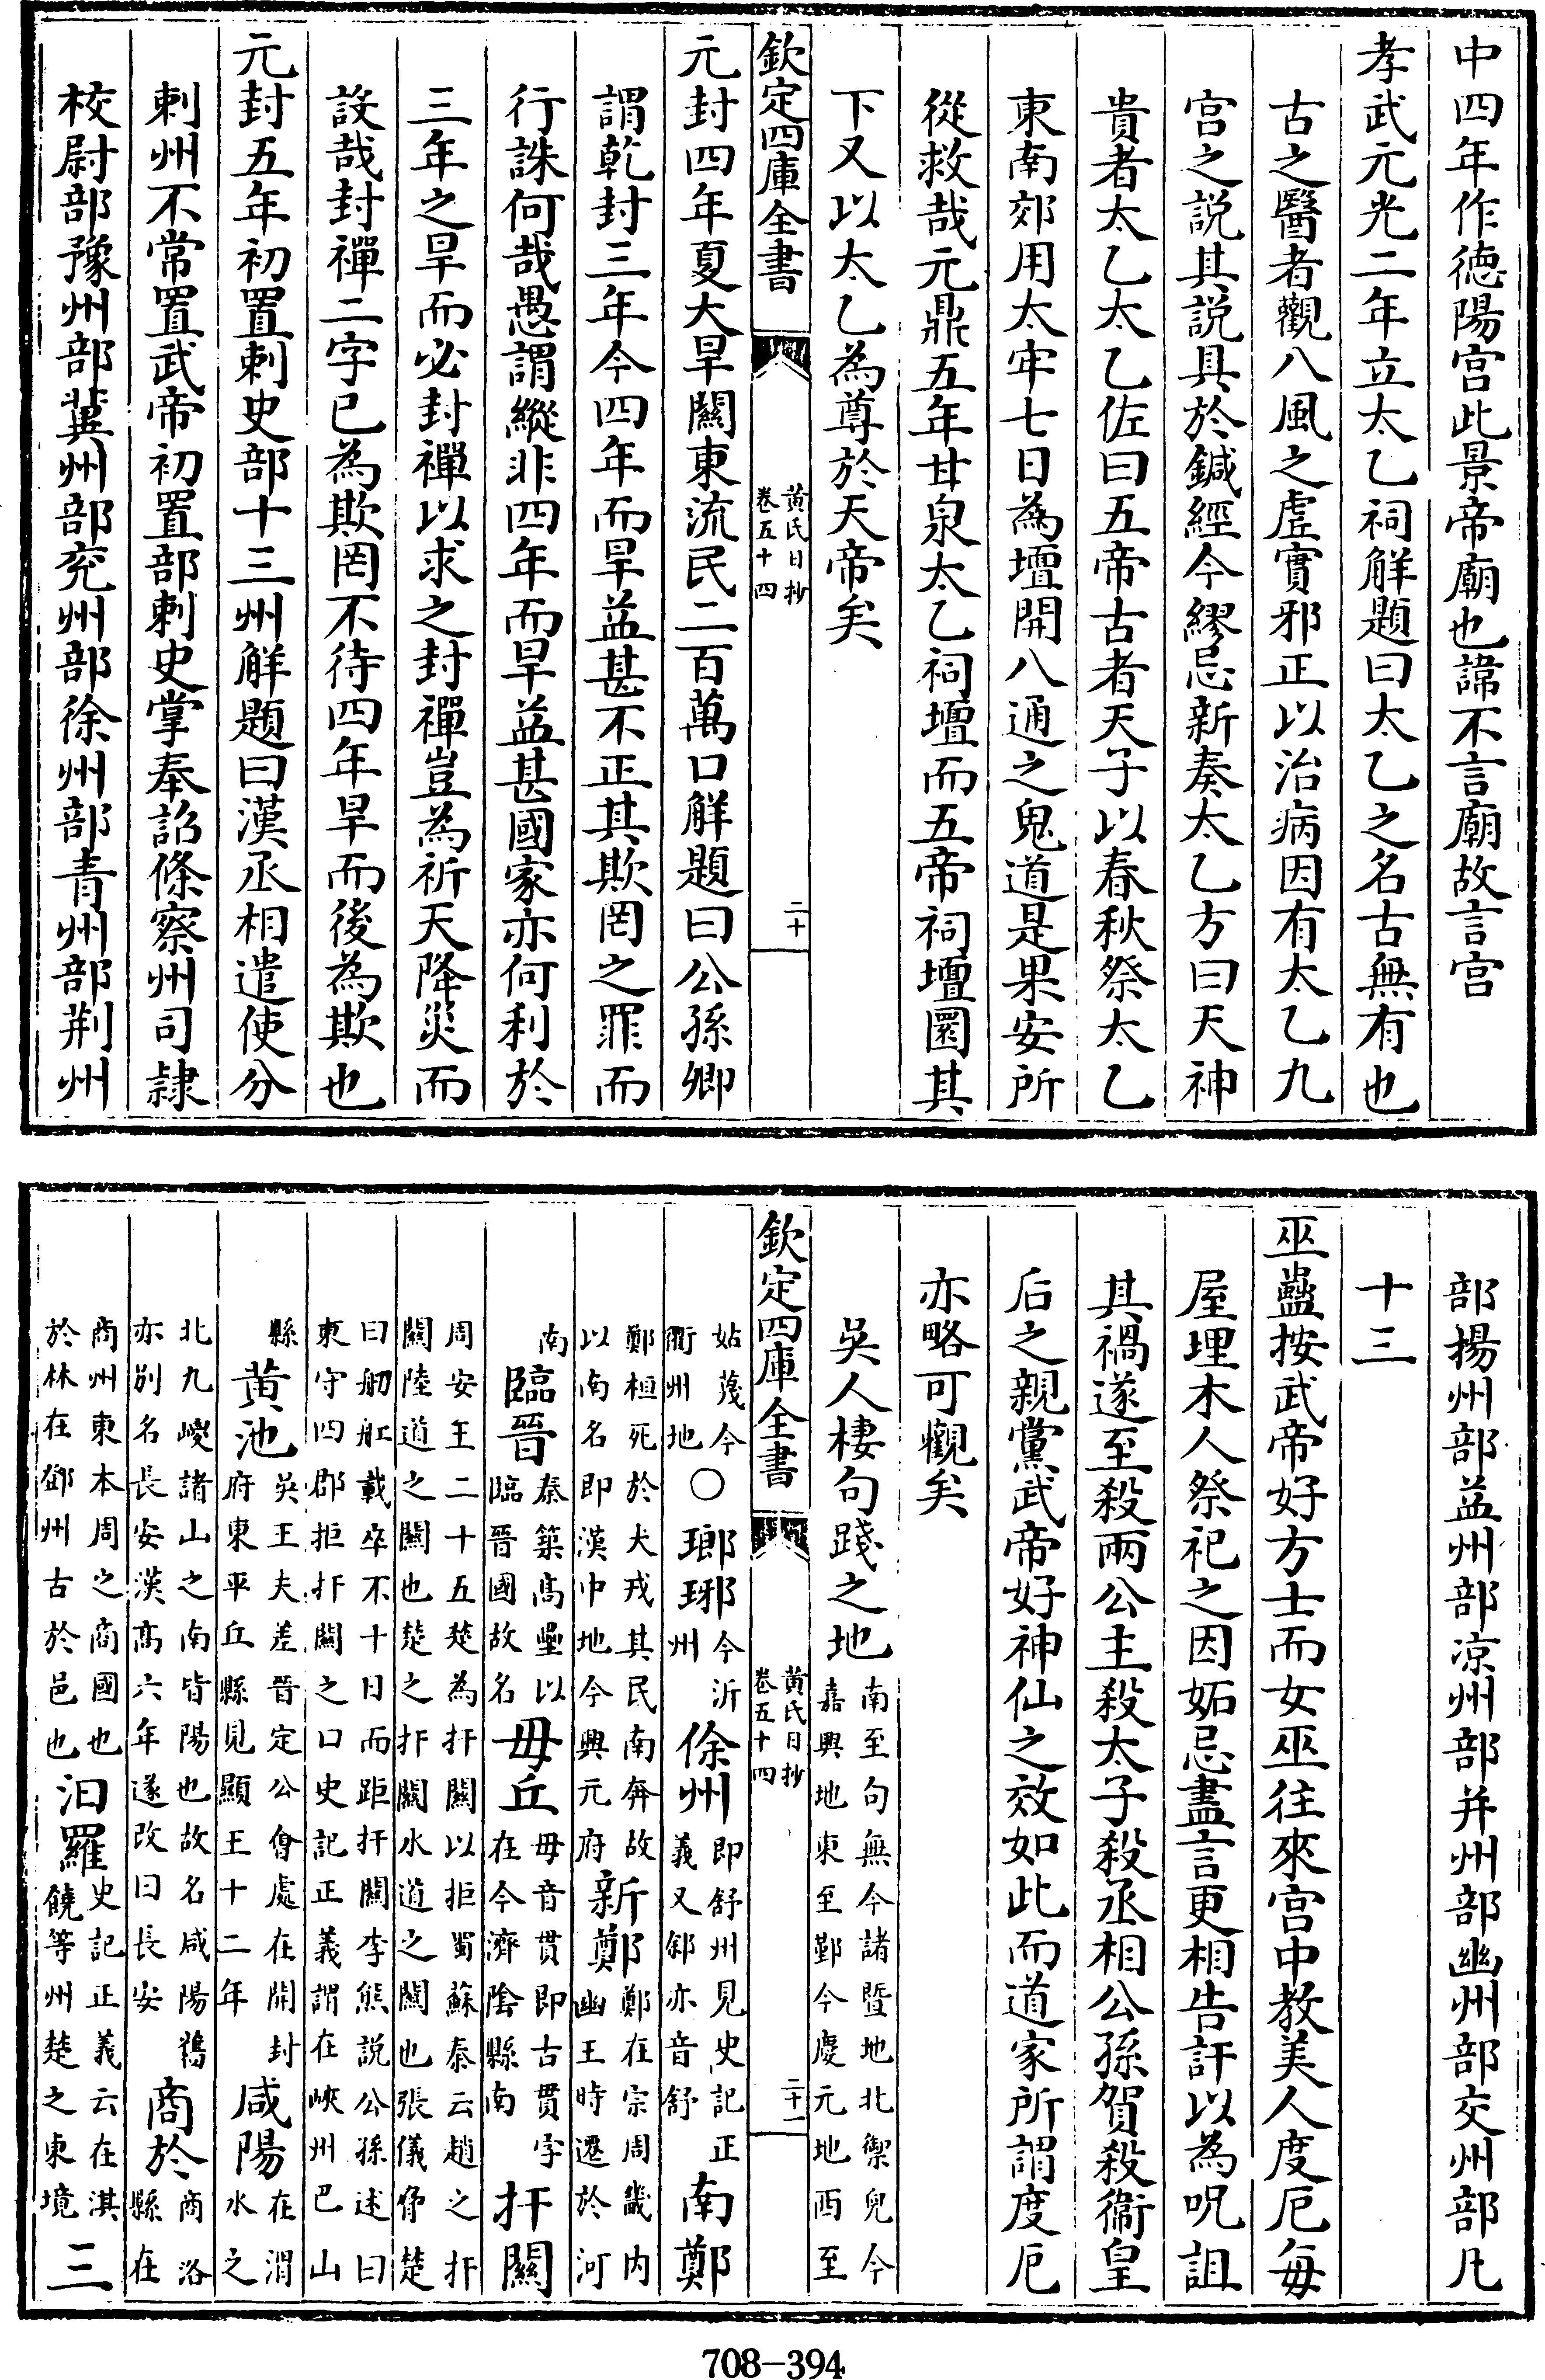 中四年作徳陽宫此景帝廟也諱不言廟故言宫
孝武元光二年立太乙祠解題曰太乙之名古無有也
古之醫者觀八風之虚實邪正以治病因有太乙九
宫之説其説具於鍼經今繆忌新奏太乙方曰天神
貴者太乙太乙佐曰五帝古者天子以春秋祭太乙
東南郊用太牢七日為壇開八通之鬼道是果安所
從救哉元鼎五年甘泉太乙祠壇而五帝祠壇圜其
下又以太乙為尊於天帝矣
欽定四庫全書
黄氏日抄
卷五十四
二十
元封四年夏大旱關東流民二百萬口解題曰公孫卿
謂乾封三年今四年而旱益甚不正其欺罔之罪而
行誅何哉愚謂縱非四年而旱益甚國家亦何利於
三年之旱而必封禪以求之封禪豈為祈天降災而
設哉封禪二字已為欺罔不待四年旱而後為欺也
元封五年初置刺史部十三州解題曰漢丞相遣使分
刺州不常置武帝初置部刺史掌奉詔條察州司隷
校尉部豫州部冀州部兖州部徐州部青州部荆州
部揚州部益州部凉州部并州部幽州部交州部凡
十三
巫蠱按武帝好方士而女巫往來宫中教美人度厄毎
屋埋木人祭祀之因妬忌盡言更相告訐以為呪詛
其禍遂至殺兩公主殺太子殺丞相公孫賀殺衞皇
后之親黨武帝好神仙之效如此而道家所謂度厄
亦略可觀矣
吳人棲句踐之地南至句無今諸暨地北禦兒今
嘉興地東至鄞今慶元地西至
欽定四庫全書
黄氏日抄
卷五十四
二十一
姑蔑今
衢州地〇瑯琊今沂
州徐州即舒州見史記正
義又邾亦音舒南鄭
鄭桓死於犬戎其民南奔故
以南名即漢中地今興元府新鄭鄭在宗周畿内
幽王時遷於河
南臨晉秦築高壘以
臨晉國故名毋丘毋音貫即古貫字
在今濟隂縣南扞關
周安王二十五楚為扞關以拒蜀蘇秦云趙之扞
關陸道之關也楚之扞關水道之關也張儀脅楚
曰舫舡載卒不十日而距扞關李熊説公孫述曰
東守四郡拒扞關之口史記正義謂在峽州巴山
縣黄池吳王夫差晉定公會處在開封
府東平丘縣見顯王十二年咸陽在渭
水之
北九嵕諸山之南皆陽也故名咸陽鴇
亦别名長安漢高六年遂改曰長安商於商洛
縣在
商州東本周之商國也
於林在鄧州古於邑也汨羅史記正義云在淇
饒等州楚之東境三
708-394